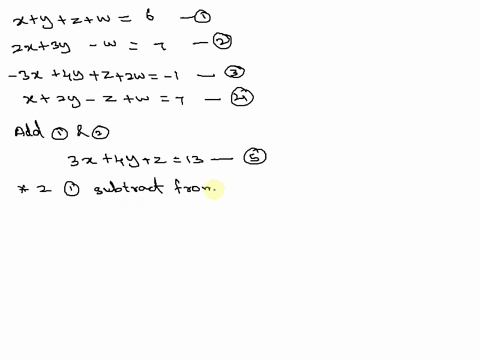 x+y+z+w = 6 — ①
2x+3y -w = 7 — ②
-3x+4y+z+2w=-1 — ③
x+2y-z+w=7 — ④
Add ① & ②
3x+4y+z=13 — ⑤
* 2 ① subtract from